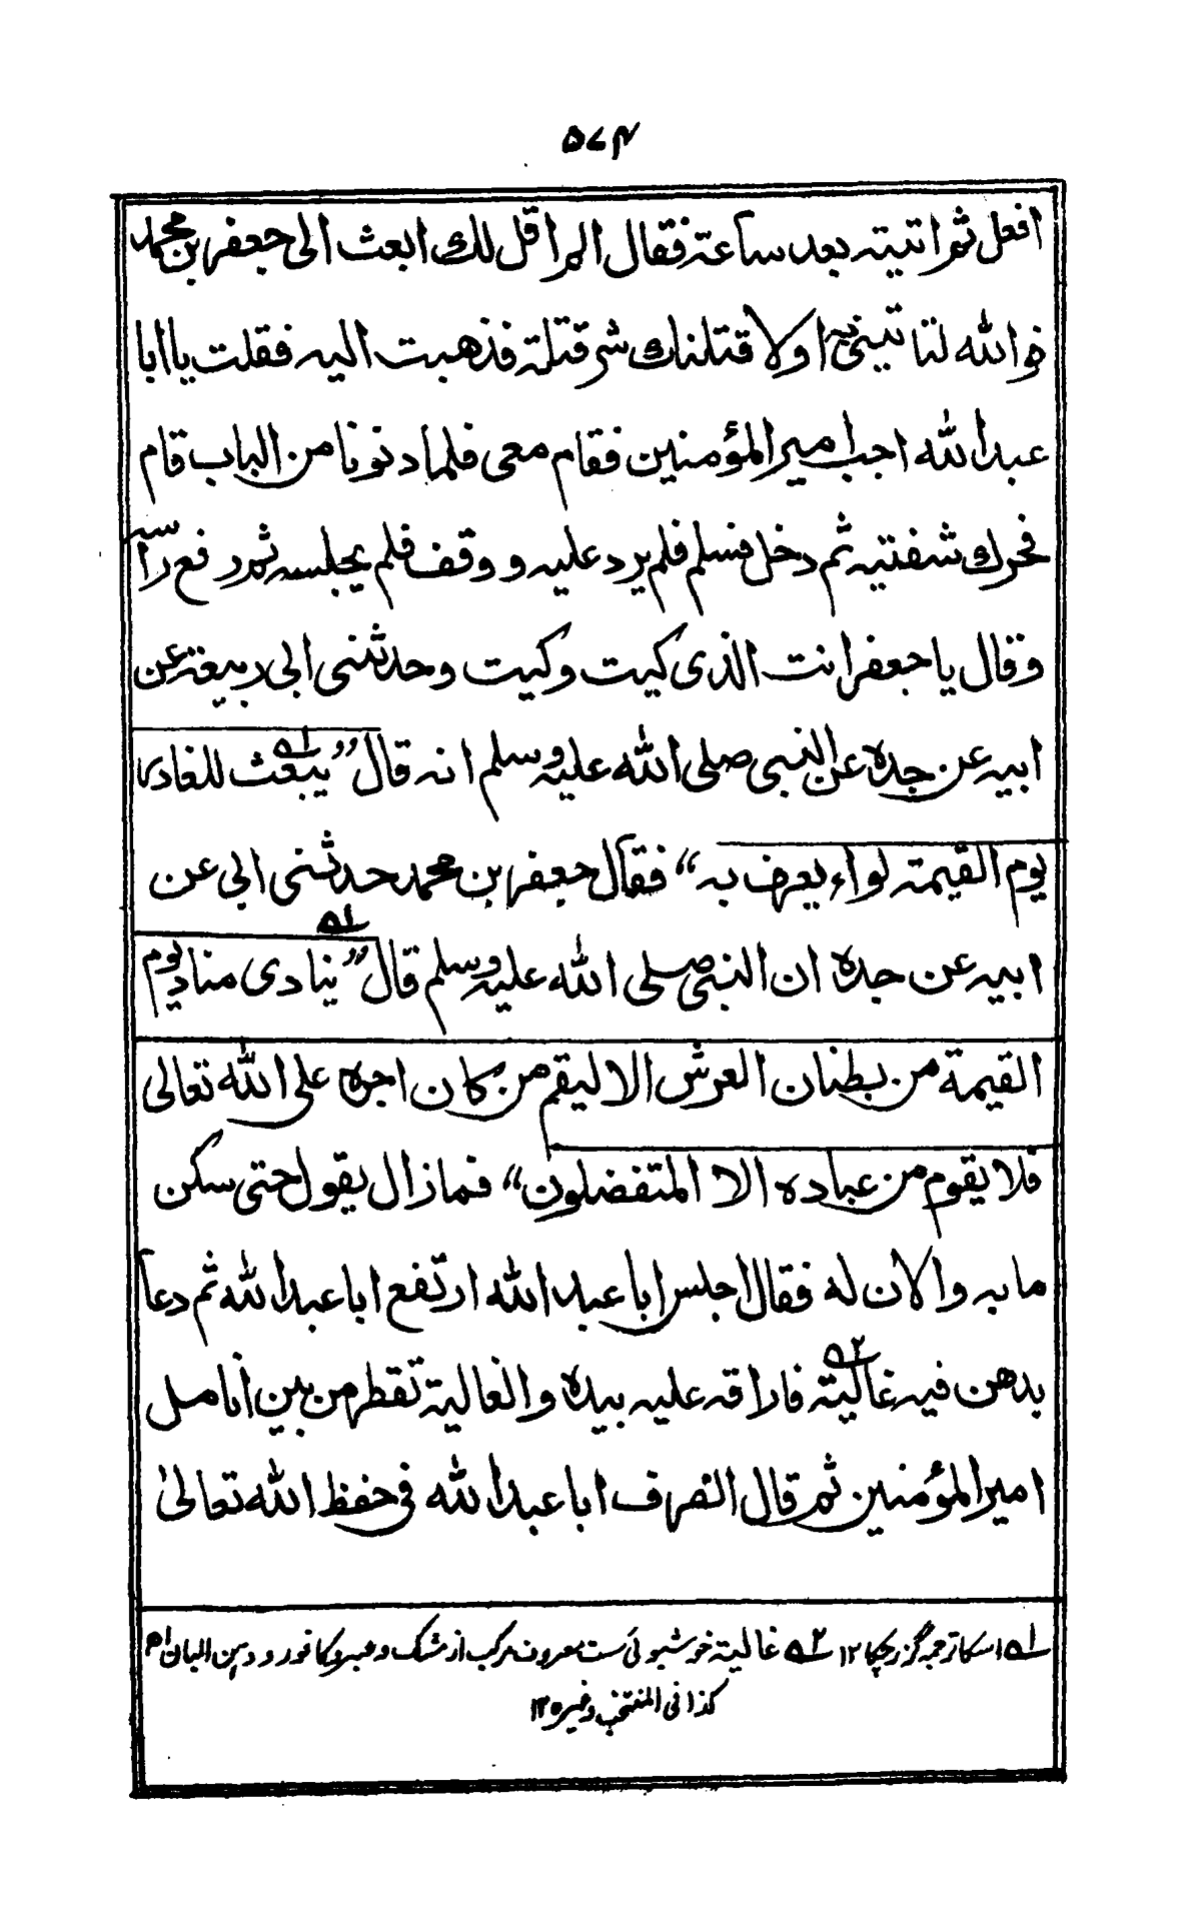 ۵۷۴
افعل ثم اتيته بعد ساعة فقال الم اقل لك ابعث الى جعفر بن محمد
فوالله لتاتينى به اولا قتلنك شر قتلة فذهبت اليه فقلت يا ابا
عبد الله اجب امير المؤمنين فقام معى فلما دنونا من الباب قام
فحرك شفتيه ثم دخل فسلم فلم يرد عليه و وقف فلم يجلسه ثم رفع رأسه
وقال يا جعفر انت الذى كيت وكيت وحدثنى ابى ربيعة عن
ابيه عن جده عن النبى صلى الله عليه وسلم انه قال ”يبعث للغادر
يوم القيمة لواء يعرف به“ فقال جعفر بن محمد حدثنى ابى عن
ابيه عن جده ان النبى صلى الله عليه وسلم قال ”ينادى مناد يوم
القيمة من بطنان العرش الا ليقم من كان اجره على الله تعالى
فلا يقوم من عباده الا المتفضلون“ فما زال يقول حتى سكن
ما به والان له فقال اجلس ابا عبد الله ارتفع ابا عبد الله ثم دعا
بدهن فيه غالية فاراقه عليه بيده والغالية تقطر من بين انامل
امير المؤمنين ثم قال انصرف ابا عبد الله فى حفظ الله تعالىٰ
۱ اسکا ترجمہ گزر چکا ۱۲ ۲ غالیۃ خوشبوئی ست معروف مرکب از مشک و عنبر و کافور و دہن البان اھ
کذا فی المنتخب وغیرہ ۱۲